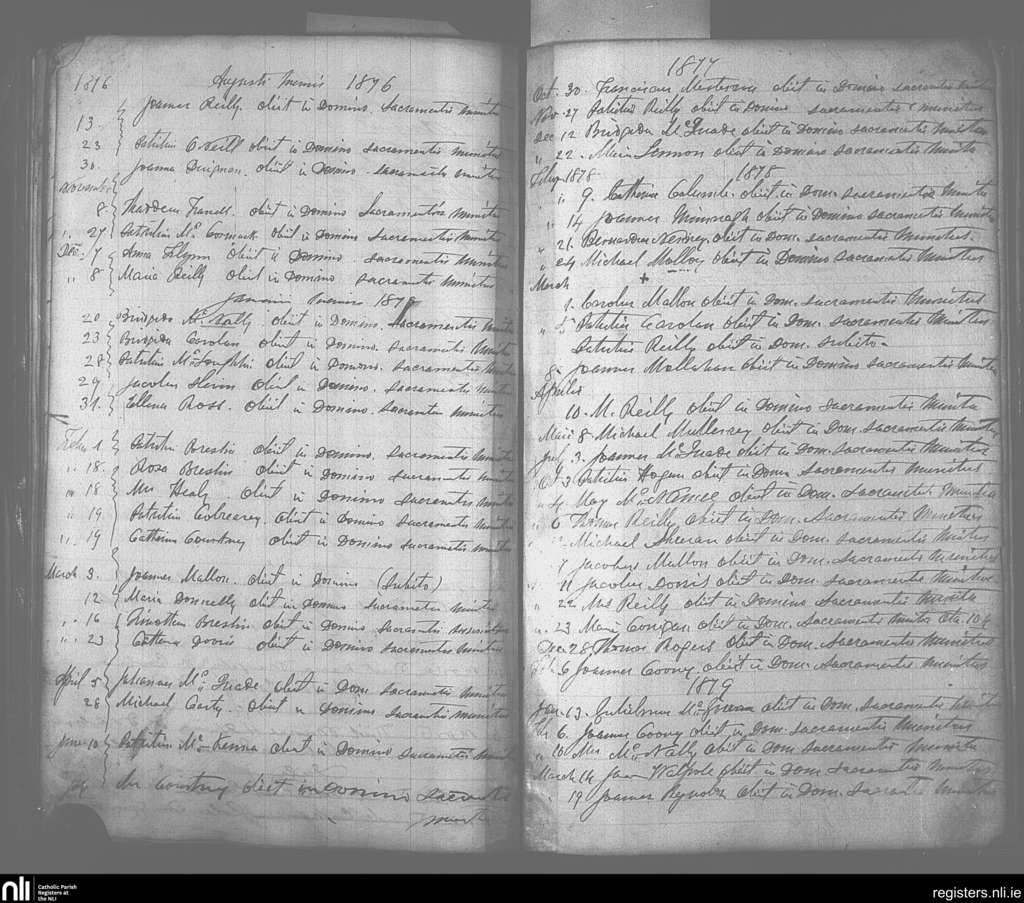 1876 Augusti Mensis 1876
Joannes Reilly obiit in Domino Sacramentis munitus
13.
23 Patritius O'Neill obiit in Domino sacramentis munitus
30. Joanna obiit in Domino. sacramentis munitus
November
8. Thaddeus Farrell. obiit in Domino Sacramentis munitus
" 27 Patritius McCormack obiit in Domino Sacramentis munitus
Dec. 7 Anna Flynn obiit in Domino. Sacramentis munitus
" 8 Maria Reilly obiit in Domino sacramentis munitus
Januarii Mensis 187
20 Bridgida McNally. obiit in Domino. Sacramentis munitus
23 Brigida Carolan obiit in Domino. sacramentis munitus
28 Patritius McLoughlin obiit in Domino. sacramentis munitus
29 Jacobus obiit in Domino. Sacramentis munitus
31. Ellena Ross. obiit in Domino. Sacramentis munitus
Feb. 1 Patritius Breslin obiit in Domino. Sacramentis munitus
" 18. Rosa Breslin obiit in Domino sacramentis munitus
" 18 Mrs Healy. obiit in Domino sacramentis munitus
" 19 Patritius obiit in Domino Sacramentis munitus
" 19 Catherina Courtney obiit in Domino sacramentis munitus
March 3. Joannes Mallon. obiit in Domino (Subito)
12 Maria Donnelly obiit in Domino Sacramentis munita
" 16 Breslin obiit in Domino Sacramentis
" 23 Catherina Dorris obiit in Domino Sacramentis munitus
April 5 Julianna McQuade obiit in Dom sacramentis munitus
28 Michael Carty. obiit in Dominus Sacramentis munitus
June 10 Patritius McKenna obiit in Domino Sacramentis munitus
Mr Courtney obiit in Domino Sacramentis
munit
1877
Oct. 30. Franciscus obiit in Domino sacramentis munitus
Nov. 27 Patritius Reilly obiit in Domino sacramentis munitus
Dec 12 Bridgida McQuade obiit in Domino sacramentis munitus
" 22. Maria Lennon obiit in Domino sacramentis munitus
Feby 1878 1878
" 9. Catherina obiit in Dom. sacramentis munita
" 14 Joannes obiit in Domino sacramentis munitus
" 21. Bernardus obiit in Dom. sacramentis munitus.
" 24 Michael Malloy obiit in Dominus sacramentis munitus
March
1. Carolus Mallon obiit in Dom. sacramentis munitus
" 5 Patritius Carolan obiit in Dom. sacramentis munitus
Patritius Reilly obiit in Dom. subito.
8. Joannes obiit in Domino sacramentis munitus
Aprilis
10. M. Reilly obiit in Domino sacramentis munita
Maii 8 Michael obiit in Dom. sacramentis munitus
July 3. Joannes McQuade obiit in Dom. sacramentis munitus
Oct. 3 Patritius Hogan obiit in Dom. Sacramentis munitus
" 4. May McNamee obiit in Dom. Sacramentis munitus
" 6 Thomas Reilly obiit in Dom. Sacramentis munitus
Michael Sheeran obiit in Dom. sacramentis munitus
7 Jacobus Mallon obiit in Dom. sacramentis munitus
11 Jacobus Dorris obiit in Dom. sacramentis munitus.
" 22. Mrs Reilly obiit in Domino sacramentis munita
" 23 Maria Corrigan obiit in Dom. Sacramentis munita
Dec. 28. Thomas Rogers obiit in Dom. Sacramentis munitus
6 Joannes Coony. obiit in Dom. Sacramentis munitus
1879
Jan. 13. Gulielmus obiit in Dom. sacramentis munitus
Feb 6. Joannes Coony obiit in Dom. Sacramentis munitus
" 10 Mrs McNally obiit in Dom sacramentis munita
March 14 Joan Walpole obiit in Dom. sacramentis munitus
" 19 Joannes Reynolds obiit in Dom. sacramentis munitus
nli Catholic Parish
Registers at
the NLI
registers.nli.ie